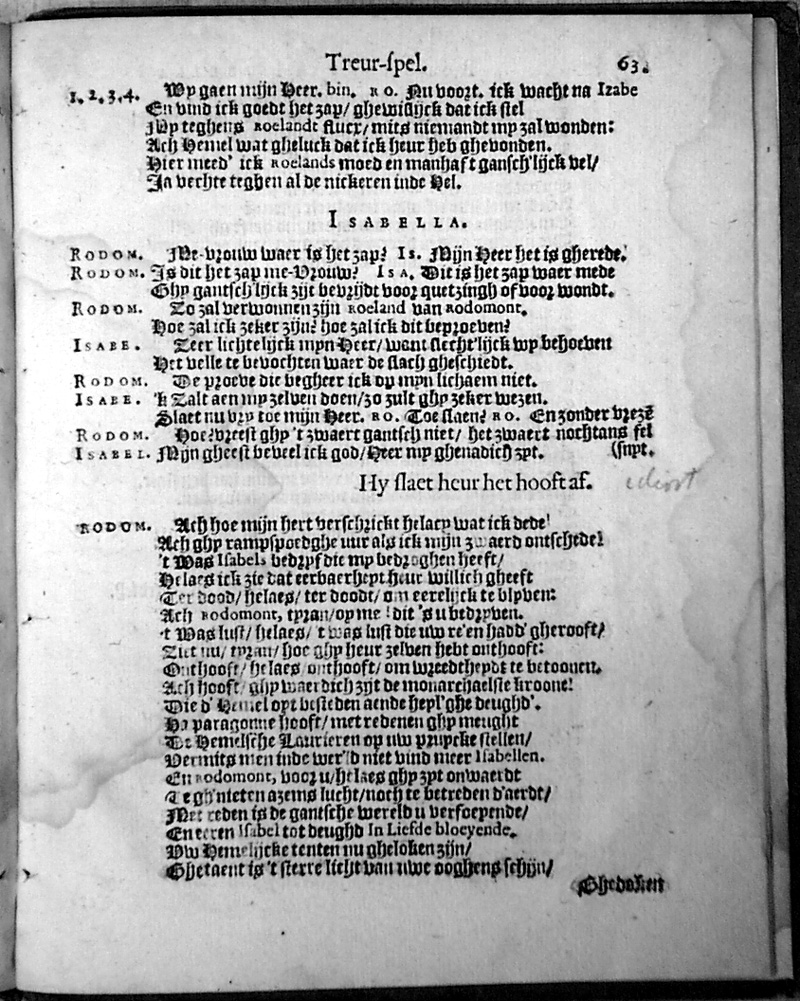 Treur-spel. 63.
1. 2. 3. 4. Wy gaen mijn Heer. bin. RO. Nu voort. ick wacht na Izabe
En vind ick goedt het zap/ ghewißlijck dat ick stel
My teghens Roelandt flucx/ mits niemandt my zal wonden:
Ach Hemel wat gheluck dat ick heur heb ghevonden.
Hier meed' ick Roelands moed en manhaft gansch'lijck vel/
Ja vechte teghen al de nickeren inde Hel.
ISABELLA.
RODOM. Me-vrouw waer is het zap? Is. Mijn Heer het is gherede.
RODOM. Is dit het zap me-Vrouw? ISA. Dit is het zap waer mede
Ghy gantsch'lijck zijt bevrijdt voor quetzingh of voor wondt.
RODOM. Zo zal verwonnen zijn Roeland van Rodomont.
Hoe zal ick zeker zijn? hoe zal ick dit beproeven?
ISABE. Zeer lichtelijck myn Heer/ want slecht'lijck wy behoeven
Het velle te bevochten waer de slach gheschiedt.
RODOM. De proeve die begheer ick op myn lichaem niet.
ISABE. 'k Zalt aen my zelven doen/ zo zult ghy zeker wezen.
Slaet nu vry toe mijn Heer. RO. Toe slaen? RO. En zonder vreze
RODOM. Hoe? vreest ghy 't zwaert gantsch niet/ het zwaert nochtans fel
ISABEL. Mijn gheest beveel ick god/ Heer my ghenadich zyt. (snyt.
Hy slaet heur het hooft af.
RODOM. Ach hoe mijn hert verschrickt helaey wat ick dede!
Ach ghy rampspoedghe uur als ick mijn zwaerd ontschede!
't Was Isabels bedryf die my bedroghen heeft/
Helaes ick zie dat eerbaerheyt heur willich gheeft
Ter dood/ helaes/ ter doodt/ om eerelijck te blyven:
Ach Rodomont, tyran/ op me! dit 's u bedryven.
't Was lust/ helaes/ 't was lust die uw re'en hadd' gherooft/
Ziet nu/ tyran/ hoe ghy heur zelven hebt onthooft:
Onthooft/ helaes onthooft/ om wreedtheydt te betoonen.
Ach hooft/ ghy waerdich zijt de monarchaelste kroone!
Die d' Hemel oyt besteden aende heyl'ghe deughd'.
Ha paragonne hooft/ met redenen ghy meught
De Hemelsche Laurieren op uw pruycke stellen/
Vermits men inde wer'ld niet vind meer Isabellen.
En Rodomont, voor u/ helaes ghy zyt onwaerdt
Te gh'nieten azems lucht/ noch te betreden d'aerdt/
Met reden is de gantsche wereld u verfoeyende/
En eeren Isabel tot deughd In Liefde bloeyende.
Uw Hemelijcke tenten nu gheloken zijn/
Ghetaent is 't sterre licht van uwe ooghens schijn/
Ghedoken